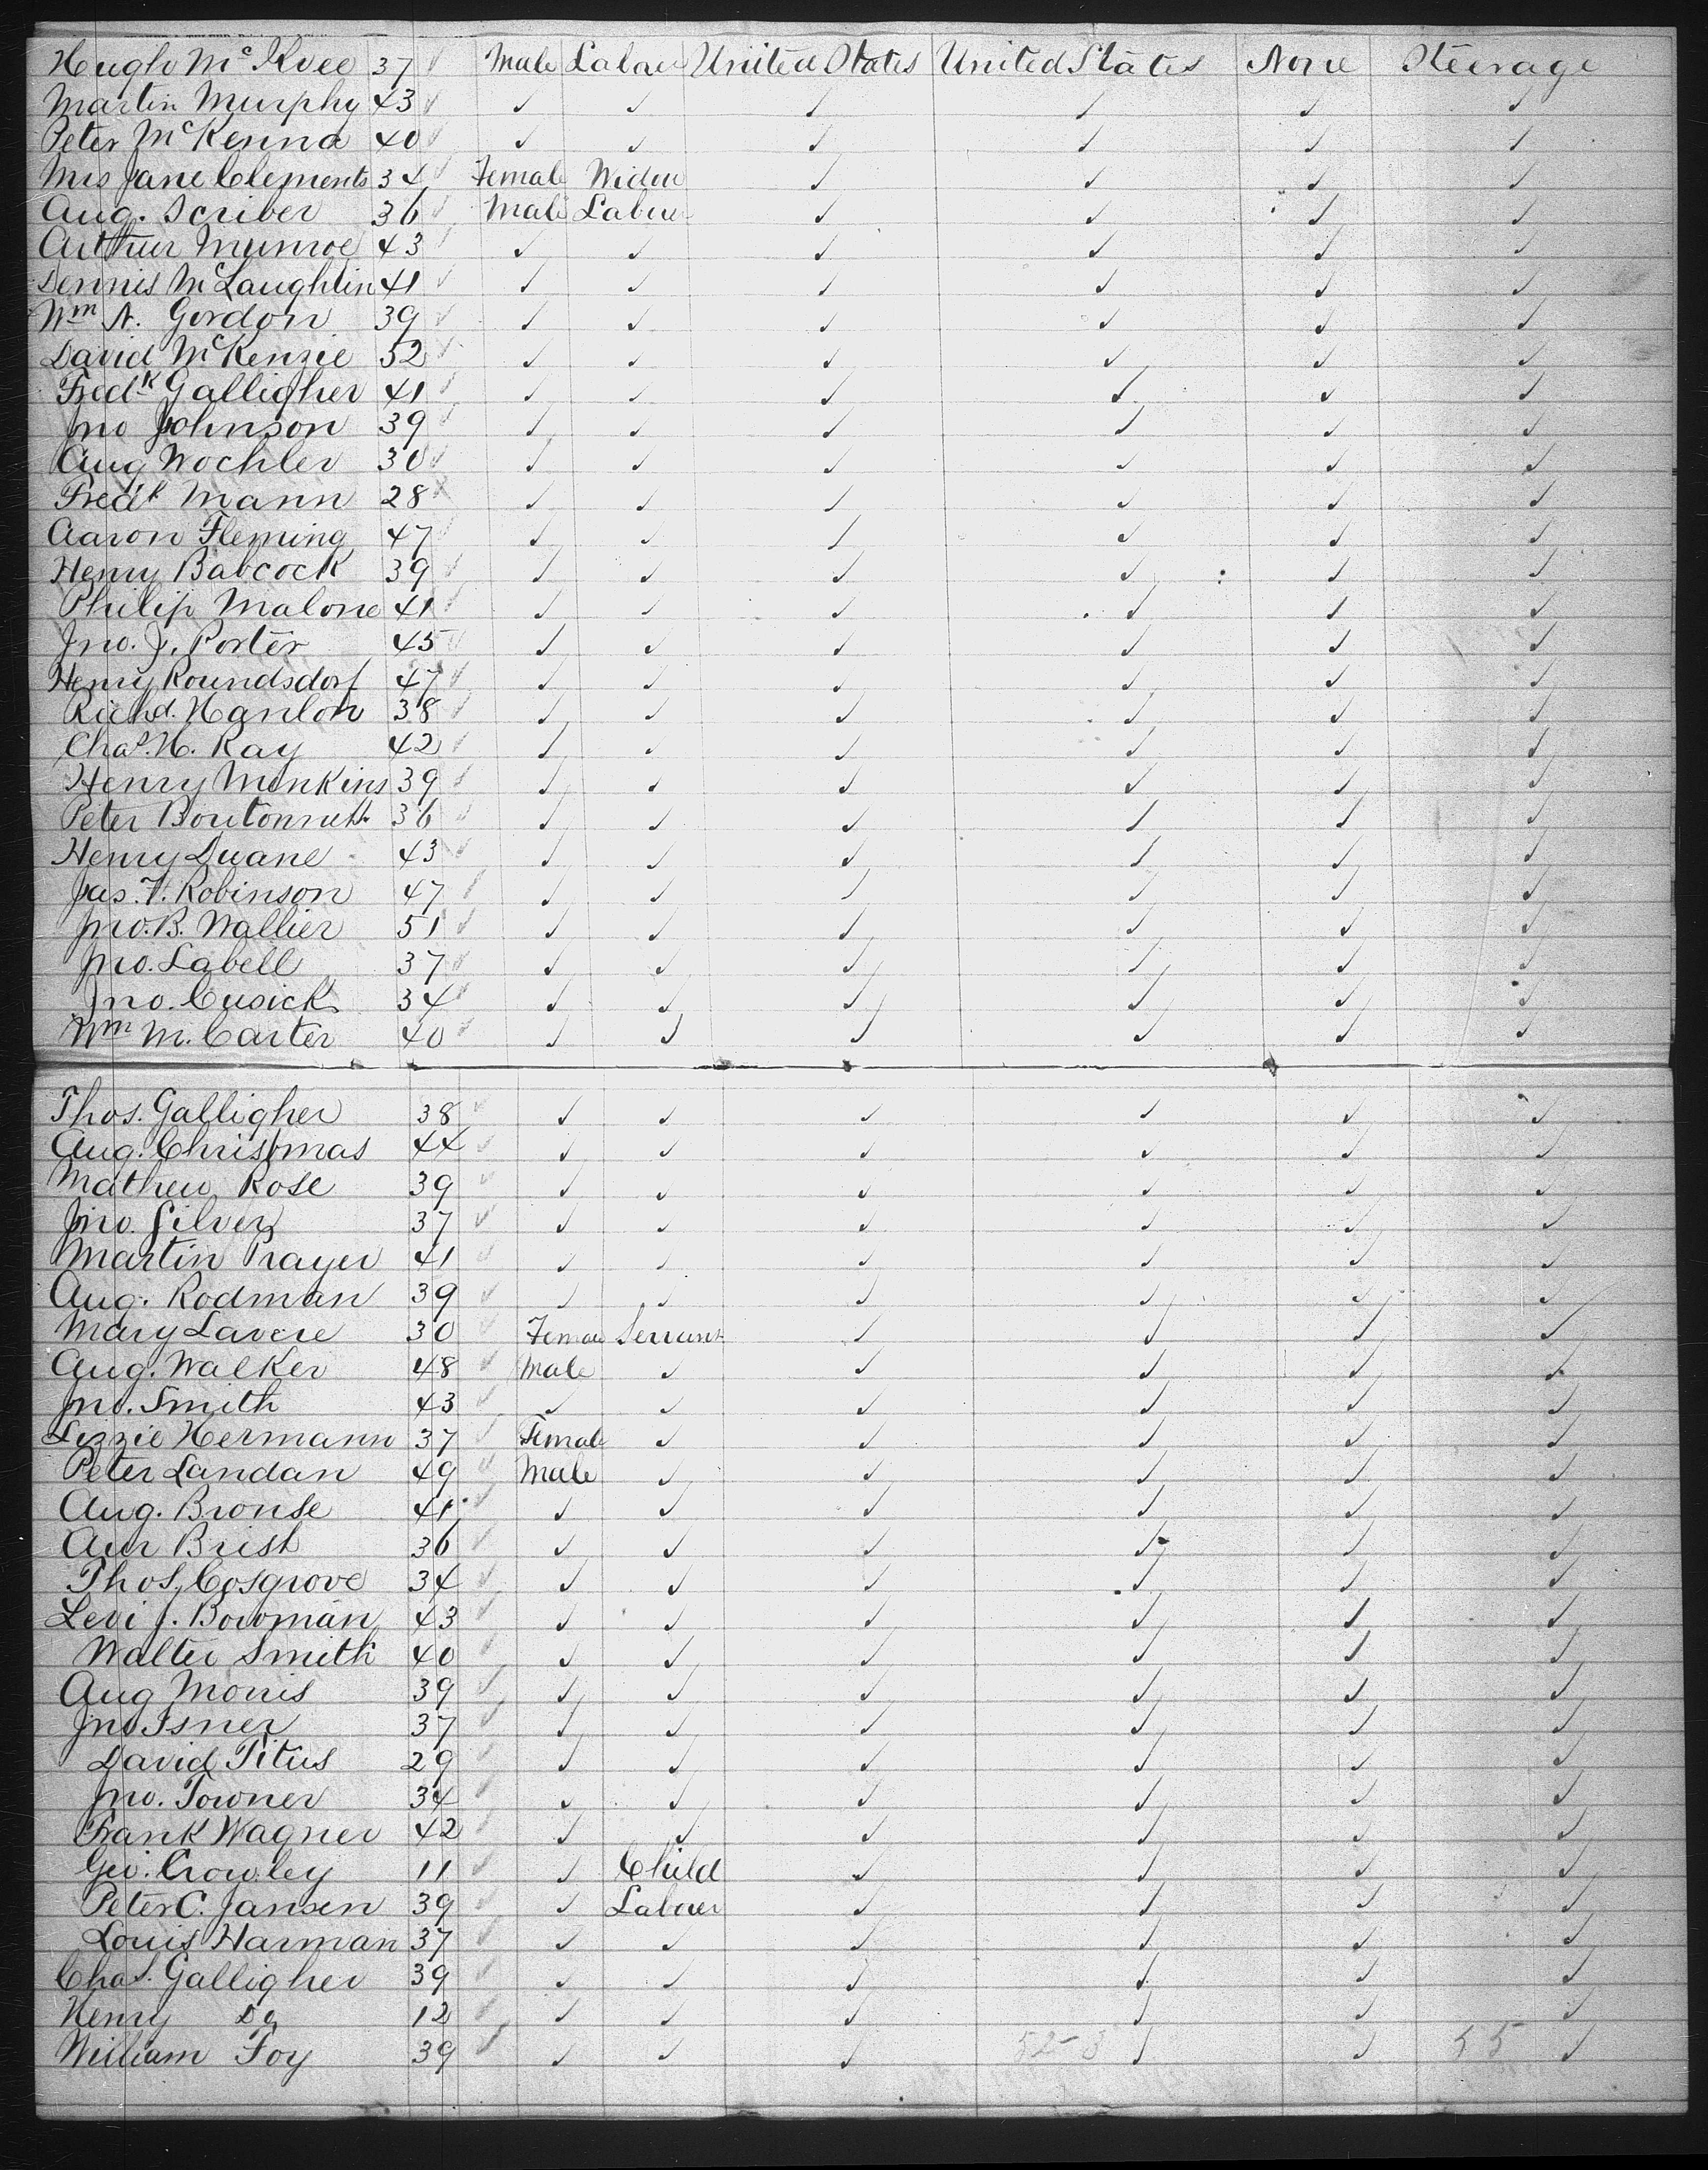 Hugh Mc Kvee 37 ✓ Male Labour United States United States None Steerage
Martin Murphy 43 ✓ ✓ ✓ ✓ ✓ ✓ ✓
Peter McKenna 40 ✓ ✓ ✓ ✓ ✓ ✓ ✓
Mrs Jane Clements 34 ✓ Female Widow ✓ ✓ ✓ ✓
Aug. Scriber 36 ✓ Male Labour ✓ ✓ ✓ ✓
Arthur Munroe 43 ✓ ✓ ✓ ✓ ✓ ✓ ✓
Dennis McLaughlin 41 ✓ ✓ ✓ ✓ ✓ ✓ ✓
Wm A. Gordon 39 ✓ ✓ ✓ ✓ ✓ ✓ ✓
David McKenzie 52 ✓ ✓ ✓ ✓ ✓ ✓ ✓
Fredk Galligher 41 ✓ ✓ ✓ ✓ ✓ ✓ ✓
Jno Johnson 39 ✓ ✓ ✓ ✓ ✓ ✓ ✓
Aug Wochler 30 ✓ ✓ ✓ ✓ ✓ ✓ ✓
Fredk Mann 28 ✓ ✓ ✓ ✓ ✓ ✓ ✓
Aaron Fleming 47 ✓ ✓ ✓ ✓ ✓ ✓ ✓
Henry Babcock 39 ✓ ✓ ✓ ✓ ✓ ✓ ✓
Philip Malone 41 ✓ ✓ ✓ ✓ ✓ ✓ ✓
Jno. J. Porter 45 ✓ ✓ ✓ ✓ ✓ ✓ ✓
Henry Roundsdorf 47 ✓ ✓ ✓ ✓ ✓ ✓ ✓
Richd. Hanlon 38 ✓ ✓ ✓ ✓ ✓ ✓ ✓
Chas. H. Ray 42 ✓ ✓ ✓ ✓ ✓ ✓ ✓
Henry Monkins 39 ✓ ✓ ✓ ✓ ✓ ✓ ✓
Peter 36 ✓ ✓ ✓ ✓ ✓ ✓ ✓
Henry Duane 43 ✓ ✓ ✓ ✓ ✓ ✓ ✓
Jas. F. Robinson 47 ✓ ✓ ✓ ✓ ✓ ✓ ✓
Jno. B. Wallier 51 ✓ ✓ ✓ ✓ ✓ ✓ ✓
Jno. Labell 37 ✓ ✓ ✓ ✓ ✓ ✓ ✓
Jno. Cusick 34 ✓ ✓ ✓ ✓ ✓ ✓ ✓
Wm M. Carter 40 ✓ ✓ ✓ ✓ ✓ ✓ ✓
Thos. Galligher 38 ✓ ✓ ✓ ✓ ✓ ✓ ✓
Aug. Christmas 44 ✓ ✓ ✓ ✓ ✓ ✓ ✓
Mathew Rose 39 ✓ ✓ ✓ ✓ ✓ ✓ ✓
Jno. Silver 37 ✓ ✓ ✓ ✓ ✓ ✓ ✓
Martin Prayer 41 ✓ ✓ ✓ ✓ ✓ ✓ ✓
Aug. Rodman 39 ✓ ✓ ✓ ✓ ✓ ✓ ✓
Mary Lavere 30 ✓ Female Servant ✓ ✓ ✓ ✓
Aug. Walker 48 ✓ Male ✓ ✓ ✓ ✓ ✓
Jno. Smith 43 ✓ ✓ ✓ ✓ ✓ ✓ ✓
Lizzie Hermann 37 ✓ Female ✓ ✓ ✓ ✓ ✓
Peter Landan 49 ✓ Male ✓ ✓ ✓ ✓ ✓
Aug. Bronse 41 ✓ ✓ ✓ ✓ ✓ ✓ ✓
Aur Brist 36 ✓ ✓ ✓ ✓ ✓ ✓ ✓
Thos. Cosgrove 34 ✓ ✓ ✓ ✓ ✓ ✓ ✓
Levi J. Bowman 43 ✓ ✓ ✓ ✓ ✓ ✓ ✓
Walter Smith 40 ✓ ✓ ✓ ✓ ✓ ✓ ✓
Aug Morris 39 ✓ ✓ ✓ ✓ ✓ ✓ ✓
Jno Isner 37 ✓ ✓ ✓ ✓ ✓ ✓ ✓
David Titus 29 ✓ ✓ ✓ ✓ ✓ ✓ ✓
Jno. Towner 34 ✓ ✓ ✓ ✓ ✓ ✓ ✓
Frank Wagner 42 ✓ ✓ ✓ ✓ ✓ ✓ ✓
Geo. Crowley 11 ✓ ✓ Child ✓ ✓ ✓ ✓
Peter C. Jansen 39 ✓ ✓ Labour ✓ ✓ ✓ ✓
Louis Harman 37 ✓ ✓ ✓ ✓ ✓ ✓ ✓
Chas. Galligher 39 ✓ ✓ ✓ ✓ ✓ ✓ ✓
Henry Do 12 ✓ ✓ ✓ ✓ ✓ ✓ ✓
William Foy 39 ✓ ✓ ✓ ✓ 52-3 ✓ ✓ 55 ✓